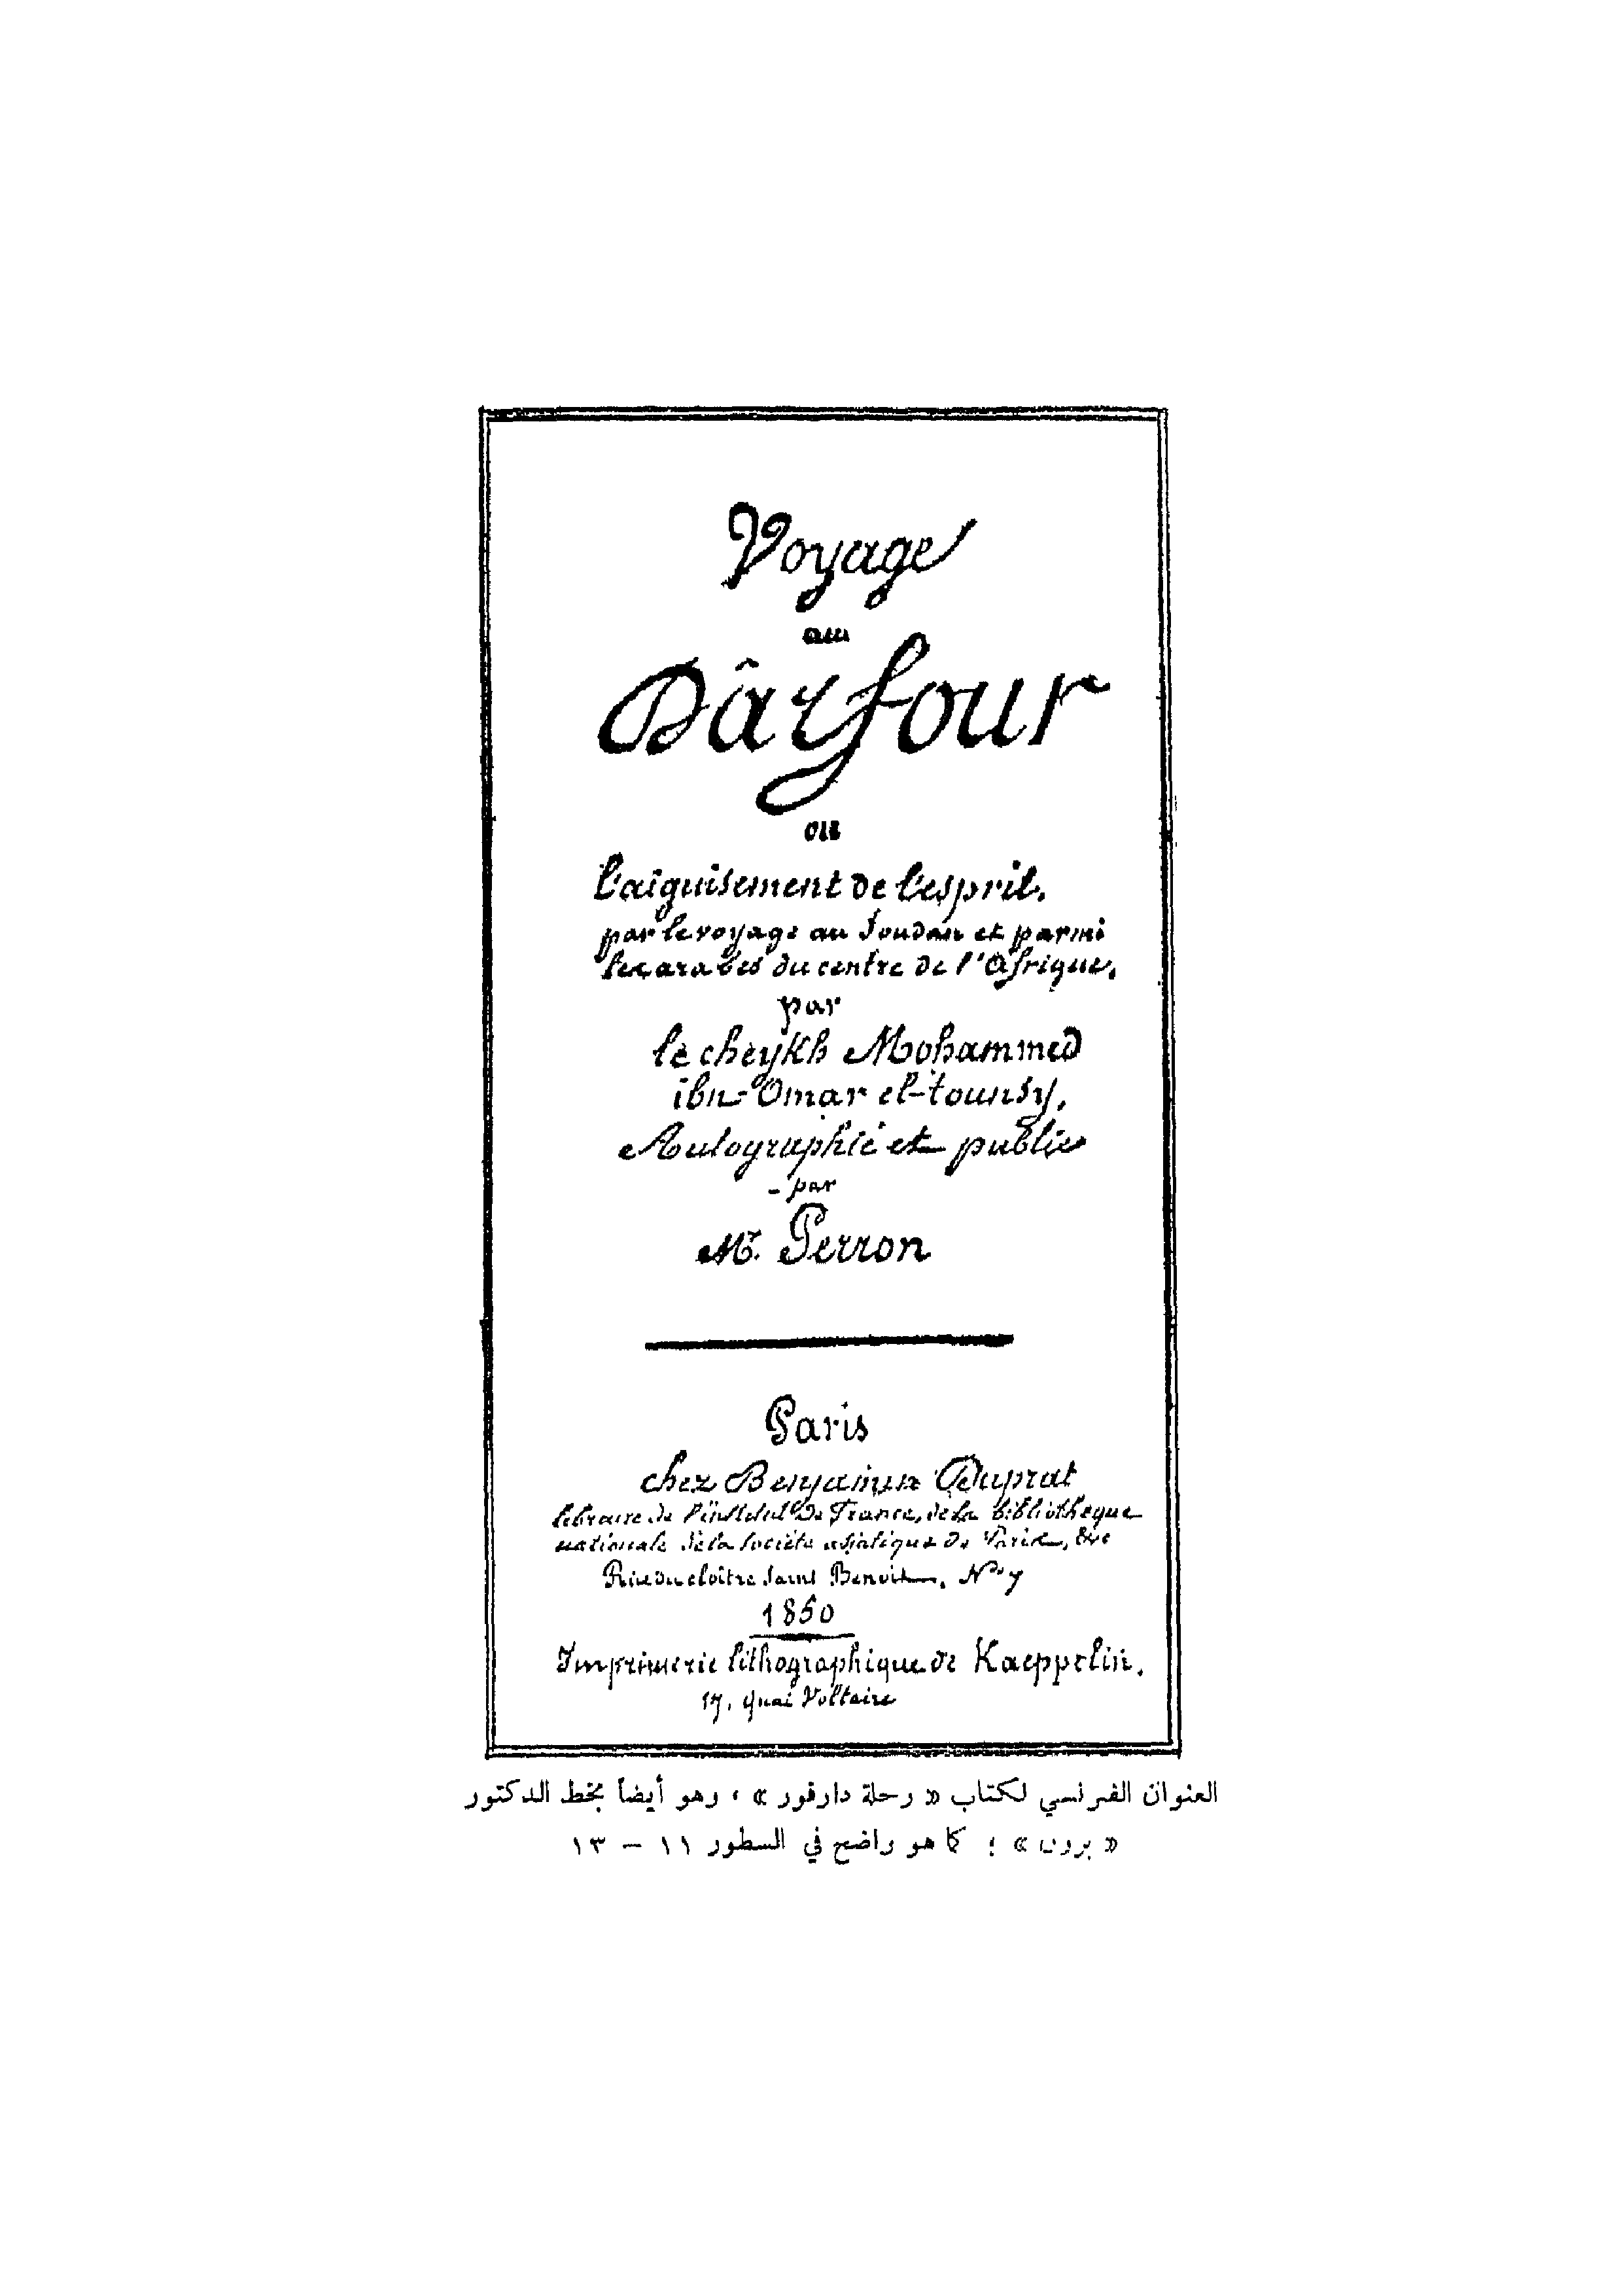 Voyage
au
Dârfour
ou
l'aiguisement de l'esprit.
par le voyage au Soudan et parmi
les arabes du centre de l'Afrique,
par
le cheykh Mohammed
ibn-Omar el-tounsy,
Autographié et publié
- par
Mr. Perron
Paris
chez Benjamin Duprat
libraire de l'institut de France, de la bibliothèque
nationale de la société asiatique de Paris, &c
Rue du cloître Saint Benoit, No 7
1850
Imprimerie lithographique de Kaeppelin.
17, quai Voltaire
العنوان الفرنسي لكتاب « رحلة دارفور » ، وهو أيضاً بخط الدكتور
« برون » ؛ كما هو واضح في السطور ١١ – ١٣